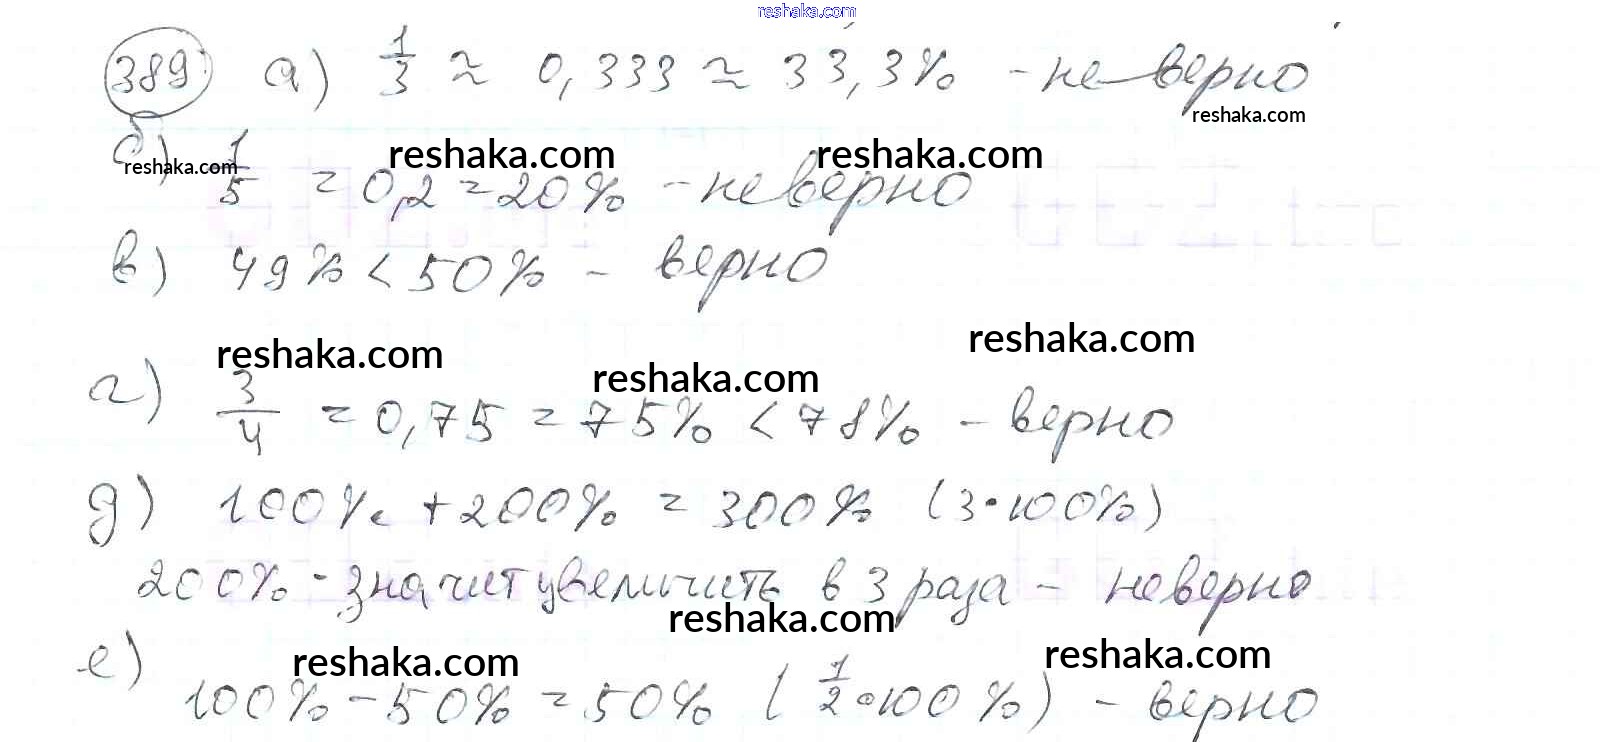 reshaka.com
389 а) 1/3 ≈ 0,333 ≈ 33,3% - неверно
reshaka.com
б) 1/5 = 0,2 = 20% - неверно
reshaka.com reshaka.com reshaka.com
в) 49% < 50% - верно
reshaka.com reshaka.com reshaka.com
г) 3/4 = 0,75 = 75% < 78% - верно
д) 100% + 200% = 300% (3·100%)
200% - значит увеличить в 3 раза - неверно
reshaka.com
е) 100% - 50% = 50% (1/2·100%) - верно
reshaka.com reshaka.com